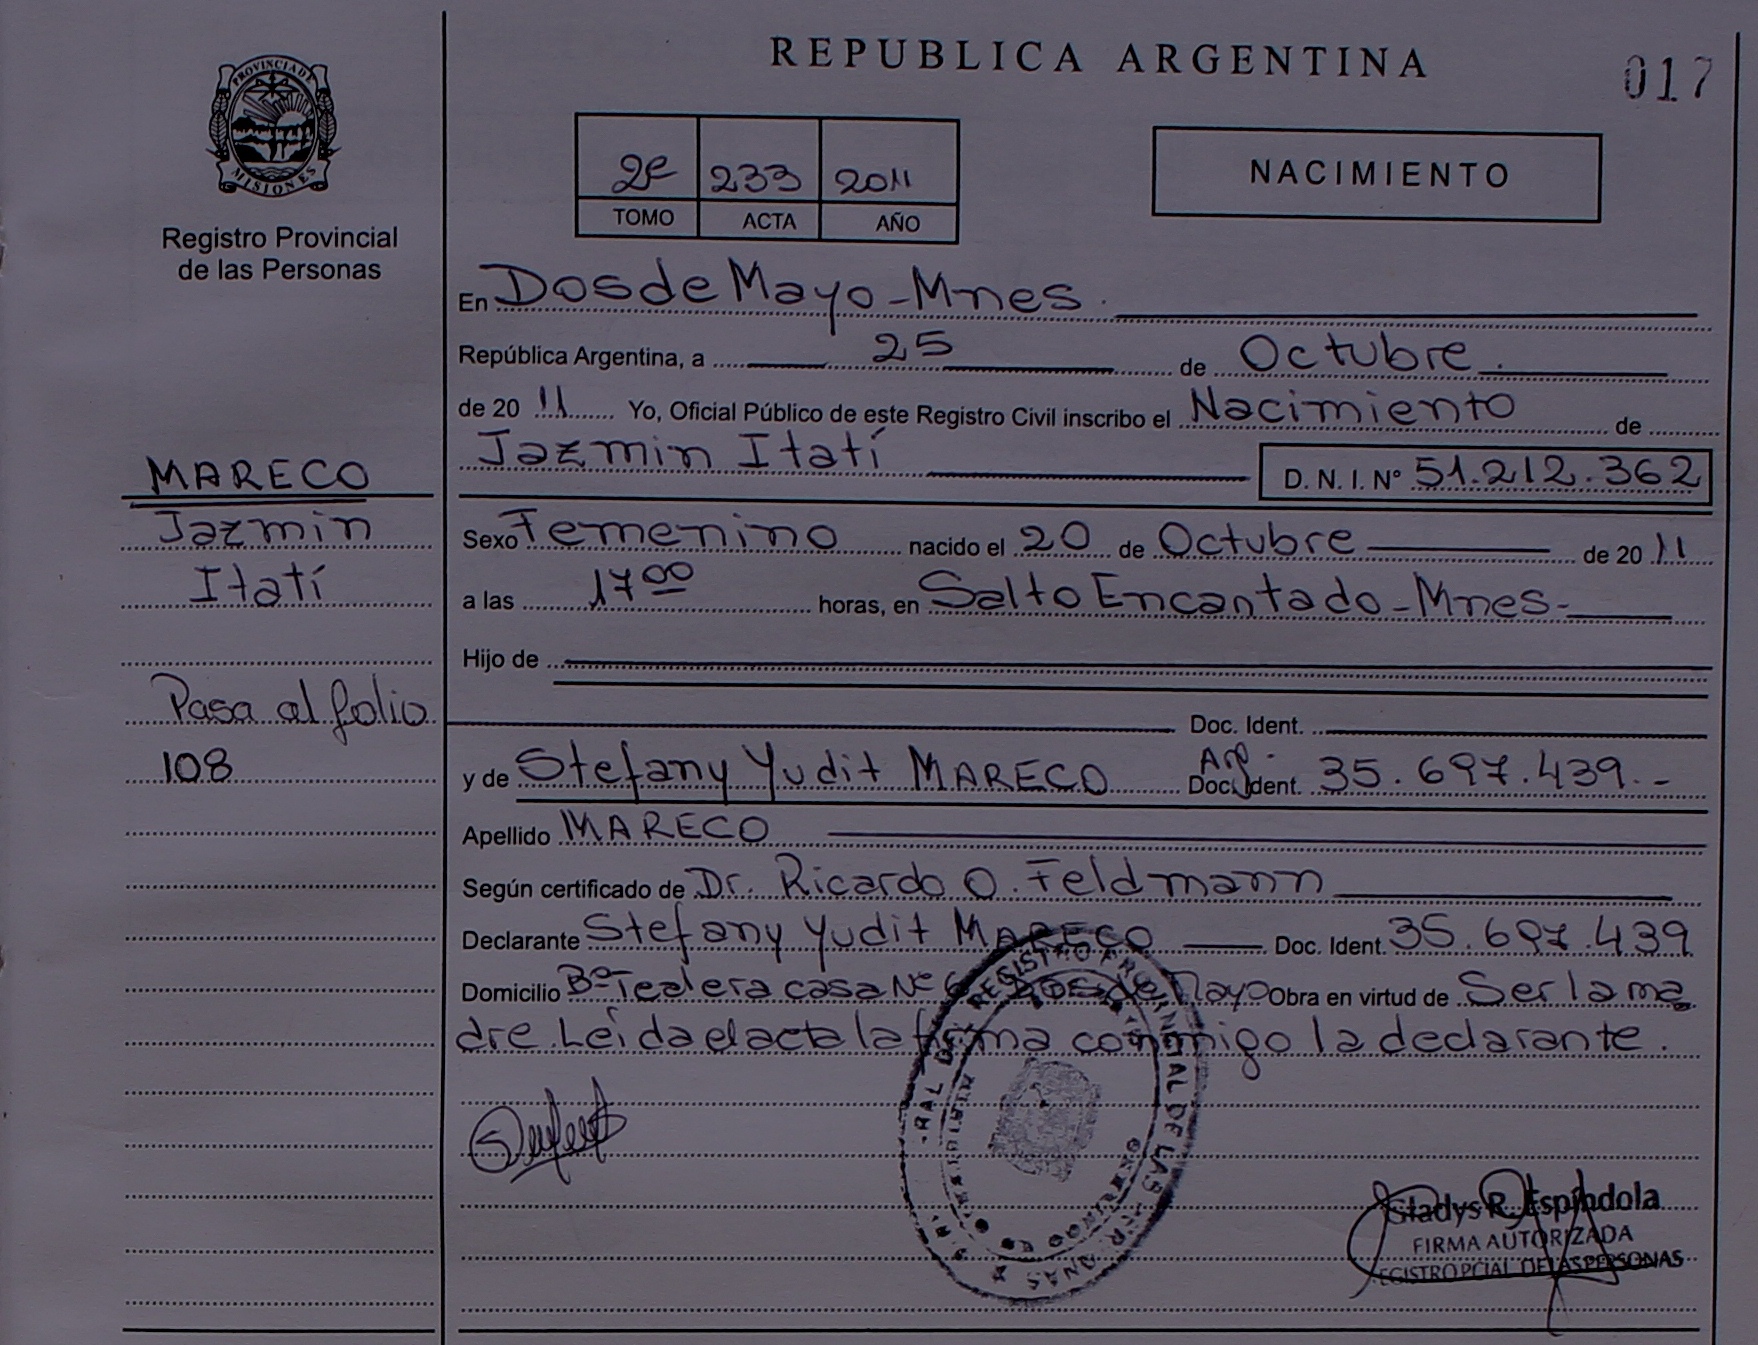 REPUBLICA ARGENTINA
017
PROVINCIA DE
MISIONES
Registro Provincial
de las Personas
2º 233 2011
TOMO ACTA AÑO
NACIMIENTO
En Dos de Mayo - Mnes.
República Argentina, a 25 de Octubre
de 20 11 Yo, Oficial Público de este Registro Civil inscribo el Nacimiento de
Jazmin Itatí D. N. I. Nº 51.212.362
MARECO
Jazmin
Itatí
Pasa al folio
108
Sexo Femenino nacido el 20 de Octubre de 20 11
a las 17 00 horas, en Salto Encantado - Mnes-
Hijo de
Doc. Ident.
y de Stefany Yudit MARECO Arg. Doc. Ident. 35.697.439.-
Apellido MARECO
Según certificado de Dr. Ricardo O. Feldmann
Declarante Stefany Yudit MARECO Doc. Ident. 35.697.439
Domicilio Bº Tealera casa Nº 6 Dos de Mayo Obra en virtud de Ser la ma
dre. Leída el acta la firma conmigo la declarante.
REGISTRO PROVINCIAL DE LAS PERSONAS
Gladys R. Espíndola
FIRMA AUTORIZADA
EGISTRO PCIAL DE LAS PERSONAS